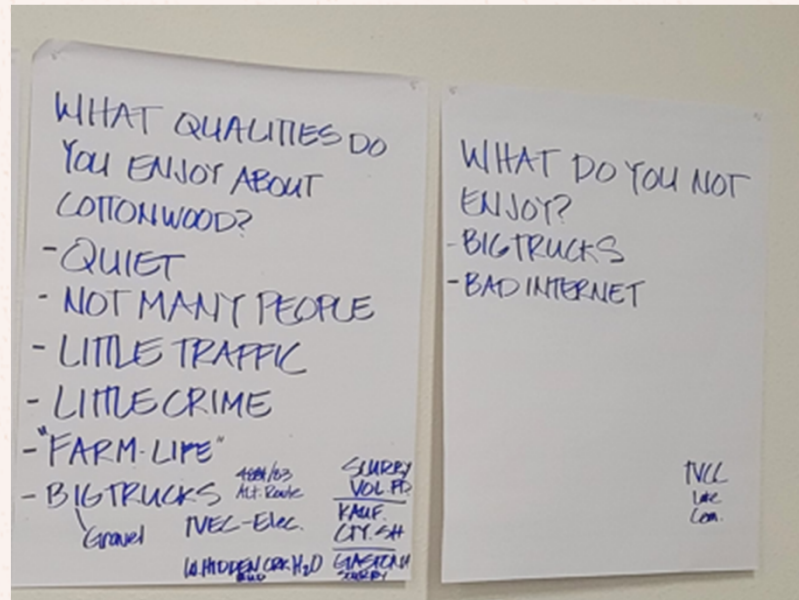 WHAT QUALITIES DO
YOU ENJOY ABOUT
COTTONWOOD?
- QUIET
- NOT MANY PEOPLE
- LITTLE TRAFFIC
- LITTLE CRIME
- "FARM-LIFE"
- BIG TRUCKS
Gravel
Alt. Route
TVEC-Elec.
SCURRY
VOL. FD.
KAUF.
CTY. SH
GASTONIA
SCURRY
WHAT DO YOU NOT
ENJOY?
- BIG TRUCKS
- BAD INTERNET
TVCC